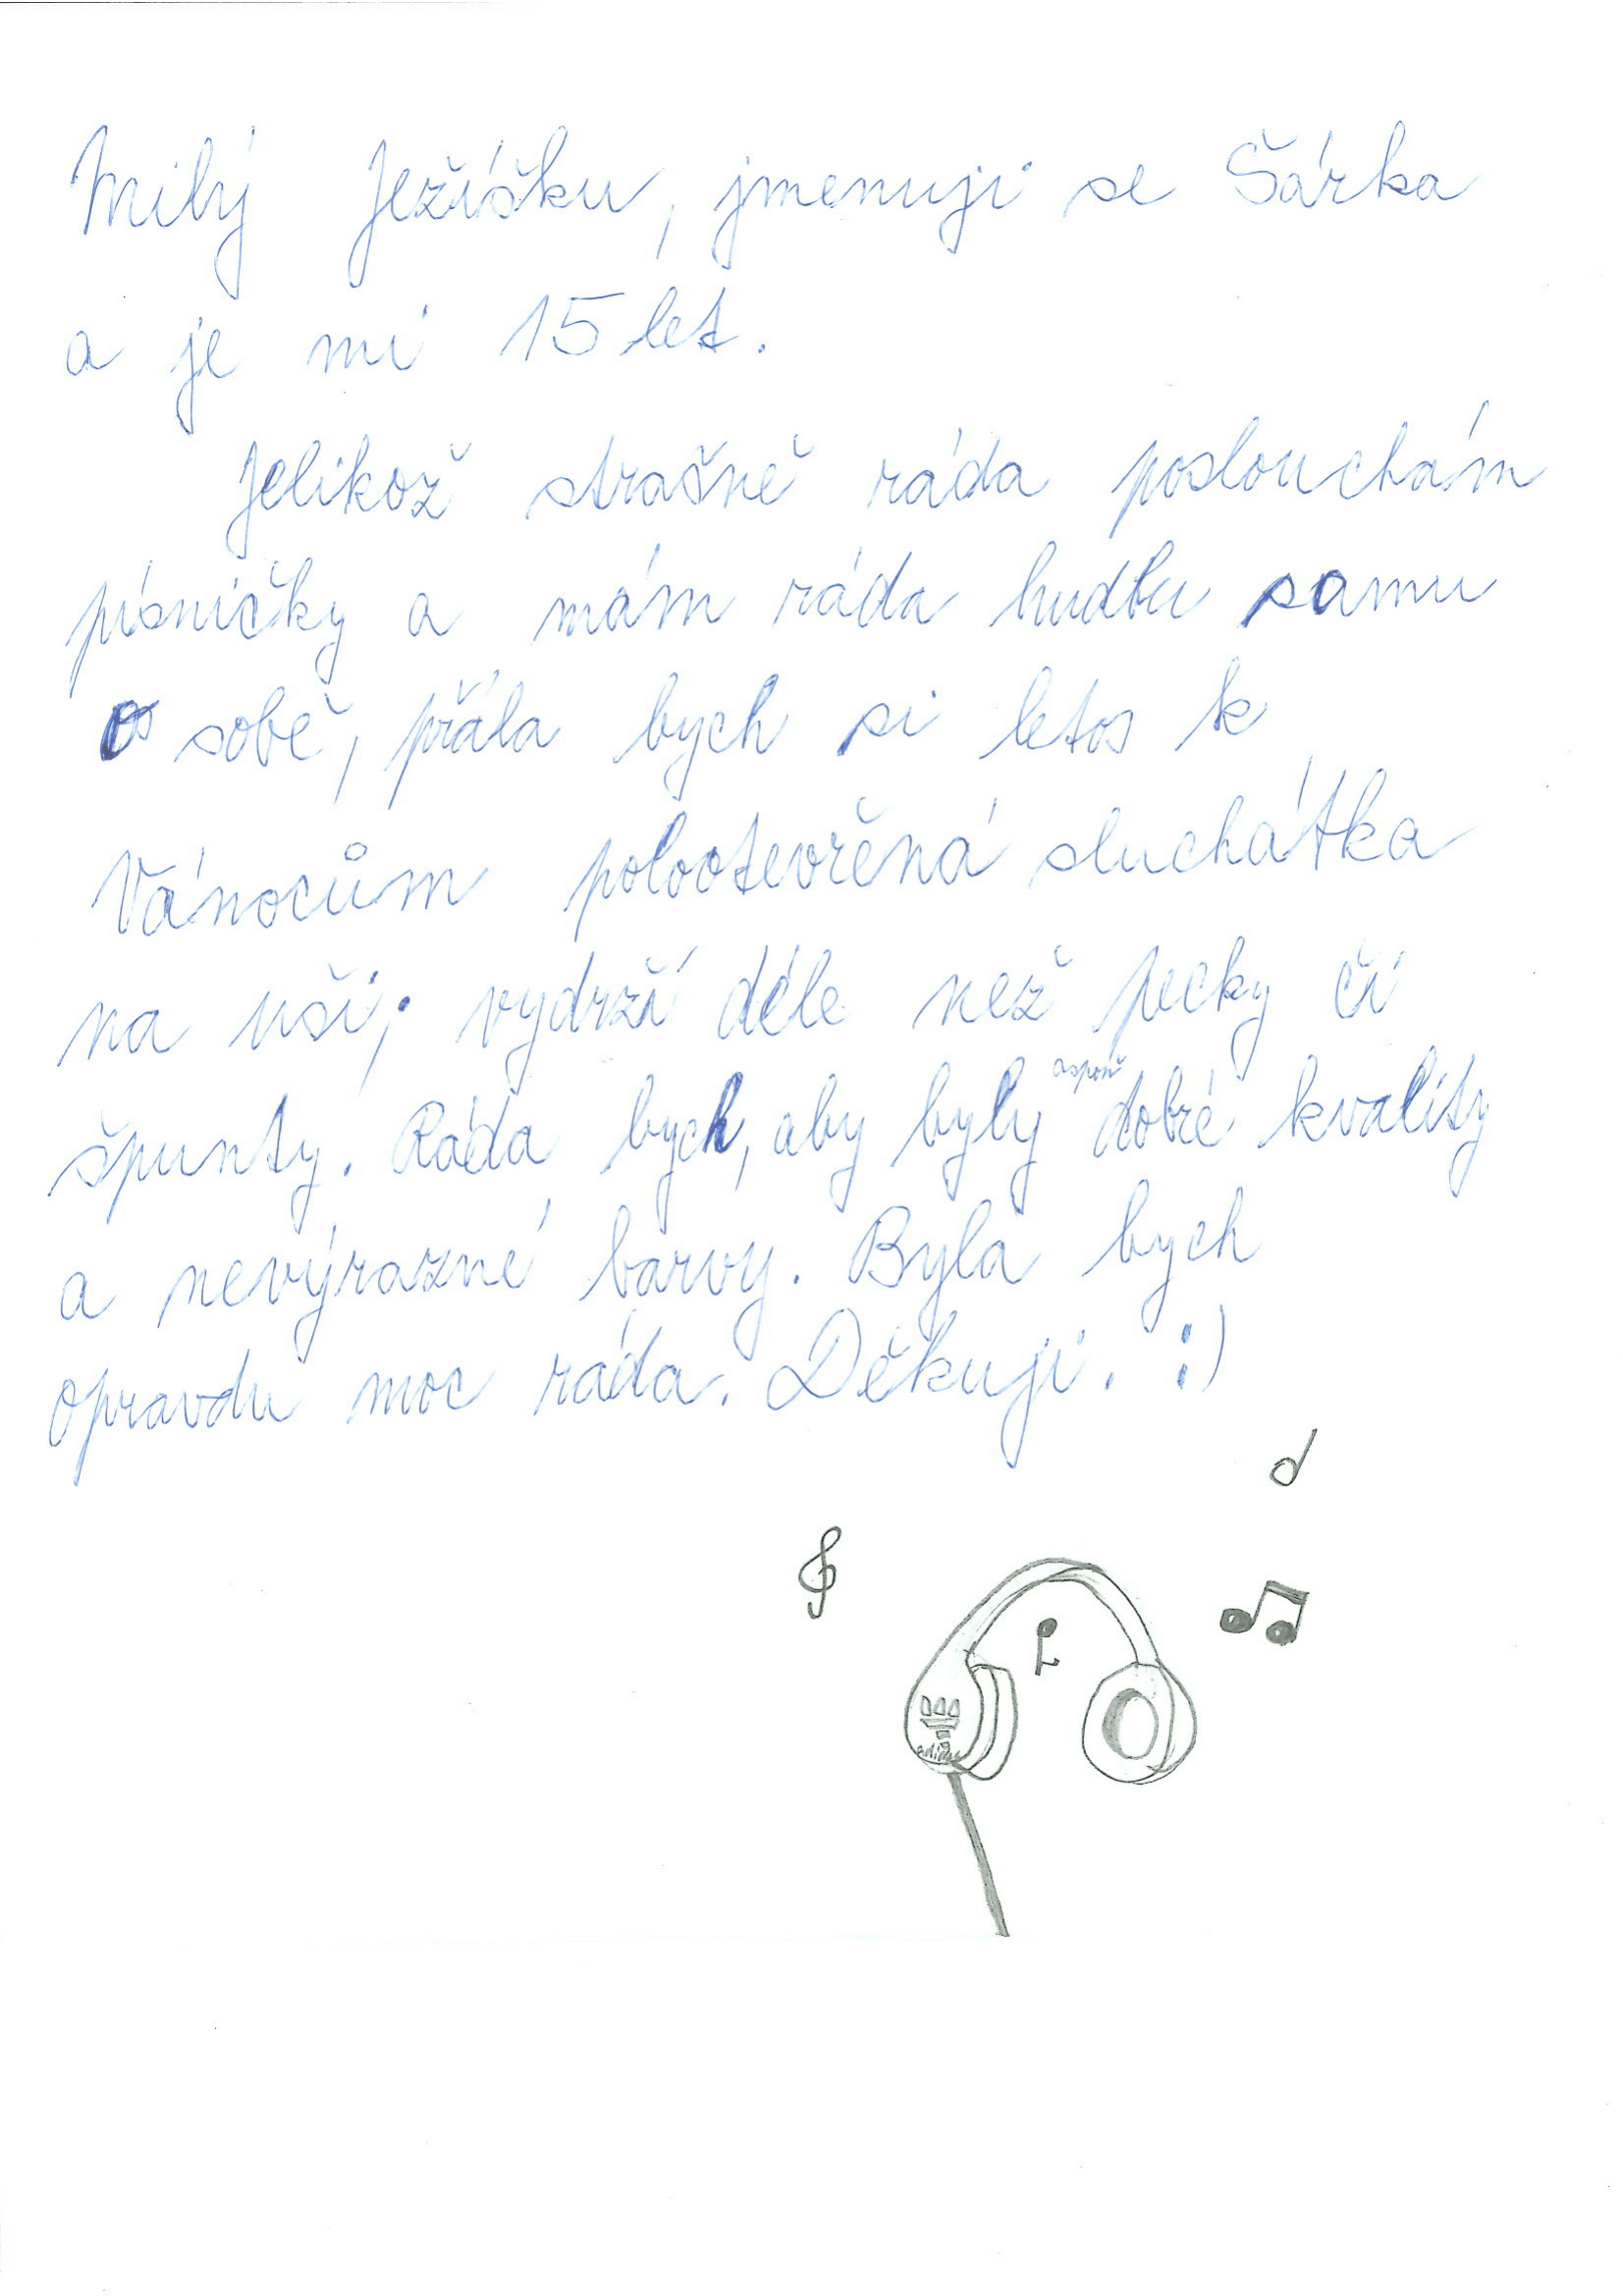 Milý Ježíšku, jmenuji se Šárka
a je mi 15 let.
Jelikož strašně ráda poslouchám
písničky a mám ráda hudbu samu
o sobě, přála bych si letos k
Vánocům polootevřená sluchátka
na uši; vydrží déle než pecky či
špunty. Ráda bych, aby byly aspoň dobré kvality
a nevýrazné barvy. Byla bych
opravdu moc ráda. Děkuji. :)
adidas